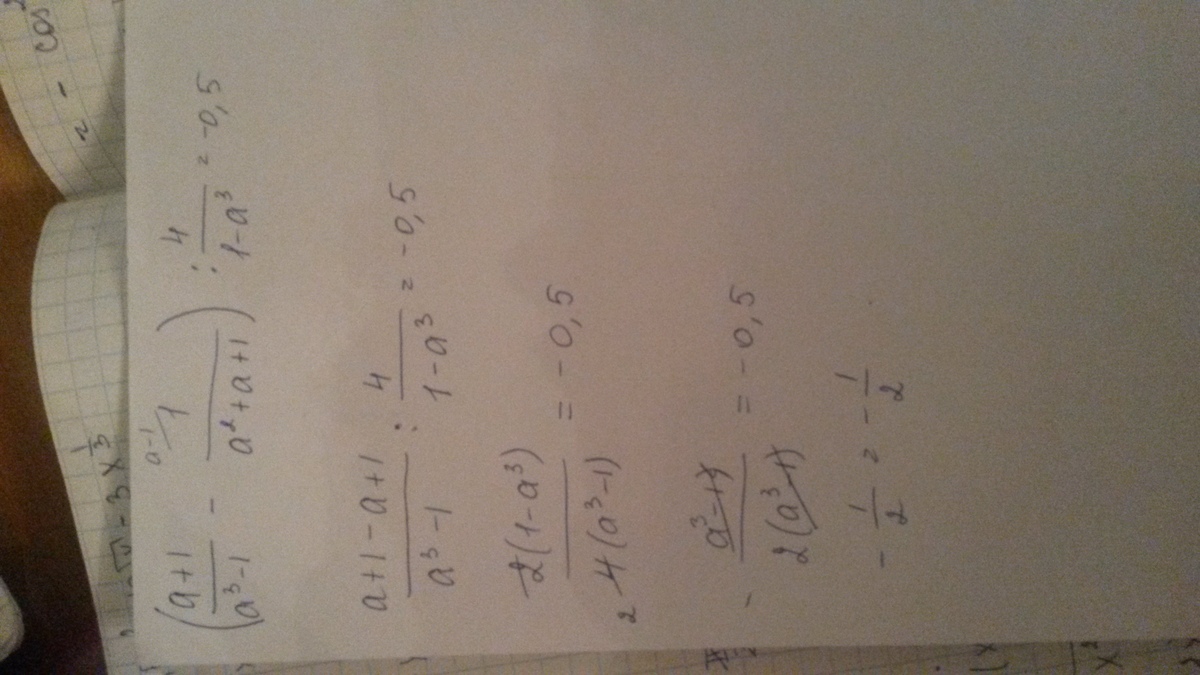 (a+1/a³-1 - a-1/1/a²+a+1) : 4/1-a³ = -0,5
a+1-a+1/a³-1 : 4/1-a³ = -0,5
2(1-a³)/2 4(a³-1) = -0,5
- a³-1/2(a³-1) = -0,5
- 1/2 = - 1/2
- cos
- 3x^1/3